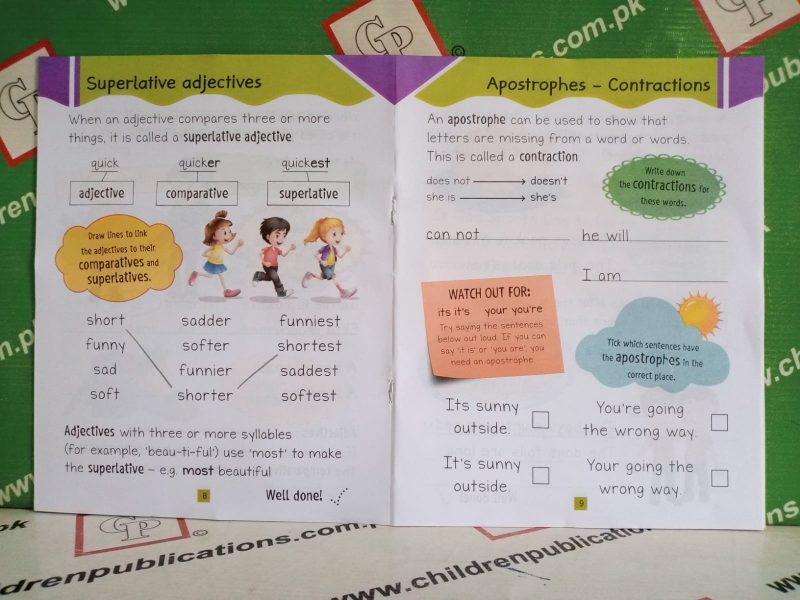 Superlative adjectives
When an adjective compares three or more
things, it is called a superlative adjective.
quick quicker quickest
adjective comparative superlative
Draw lines to link
the adjectives to their
comparatives and
superlatives.
short sadder funniest
funny softer shortest
sad funnier saddest
soft shorter softest
Adjectives with three or more syllables
(for example, 'beau-ti-ful') use 'most' to make
the superlative – e.g. most beautiful
8
Well done!
Apostrophes – Contractions
An apostrophe can be used to show that
letters are missing from a word or words.
This is called a contraction.
does not doesn't
she is she's
Write down
the contractions for
these words.
can not he will
I am
WATCH OUT FOR:
its it's your you're
Try saying the sentences
below out loud. If you can
say 'it is' or 'you are', you
need an apostrophe.
Tick which sentences have
the apostrophes in the
correct place.
Its sunny
outside.
You're going
the wrong way.
It's sunny
outside.
Your going the
wrong way.
9
GP
©
.com.pk
childrenpublications.com.pk
www.childrenpublications.com